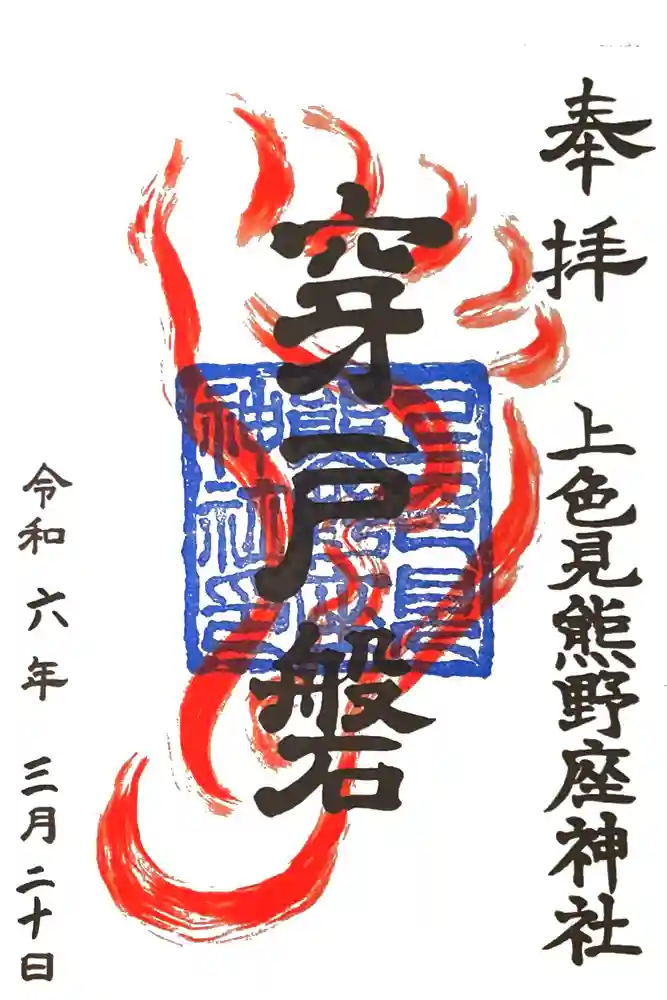 奉拝
上色見熊野座神社
穿戸磐
上色見
熊野座
神社印
令和六年三月二十日